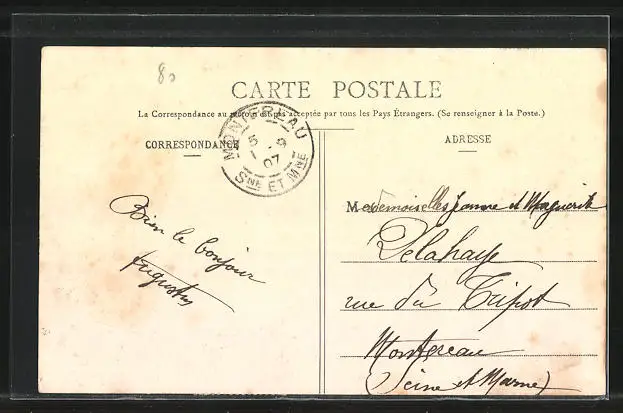 80
CARTE POSTALE
La Correspondance au recto n'est pas acceptée par tous les Pays Étrangers. (Se renseigner à la Poste.)
CORRESPONDANCE
ADRESSE
MONTEREAU
5 - 9
07
SNE ET MNE
Bien le bonjour
Augustin
Mesdemoiselles Jeanne et Marguerite
Delahaye
rue du Tripot
Montereau
(Seine et Marne)